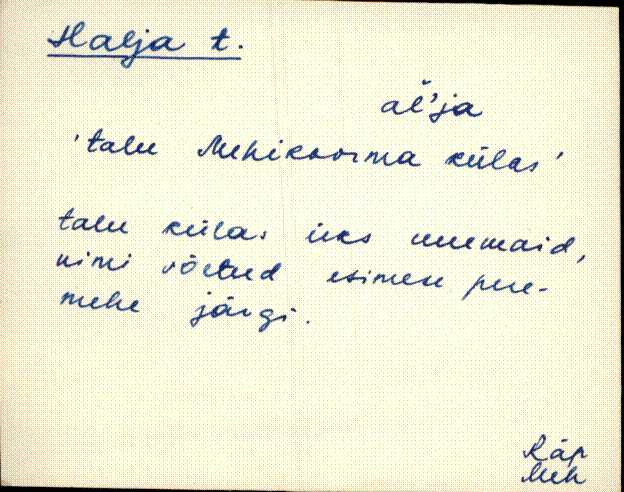 Halja t.
al̆'ja
'talu Mehikoorma külas'
talu külas üks uuemaid,
nimi võetud esimese pere-
mehe järgi.
Räp
Meh